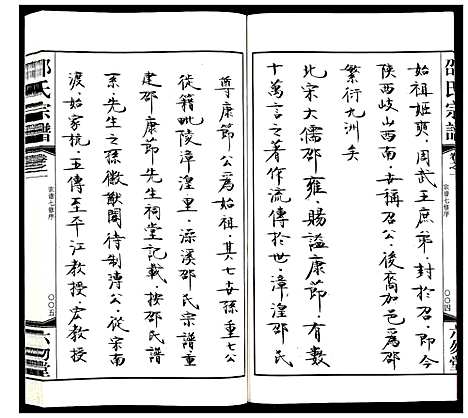 邵氏宗譜
卷之一
宗譜七修序
〇〇四
六勿堂
始祖姬奭，周武王庶弟，封於召，即今
陕西岐山西南，去稱召公，後裔加邑為邵
繁衍九洲矣
北宋大儒邵雍，賜謚康節，有數
十萬言之著作流傳於世，漳湟邵氏
尊康節公為始祖，其七世孫重七公
從籍毗陵漳湟里，深溪邵氏宗譜重
建邵康節先生祠堂記載，按邵氏譜
系，先生之孫徽猷閣待制溥公，從宋南
渡，始家杭，五傳至平江教授，宏教授
邵氏宗譜
卷之一
宗譜七修序
〇〇五
六勿堂